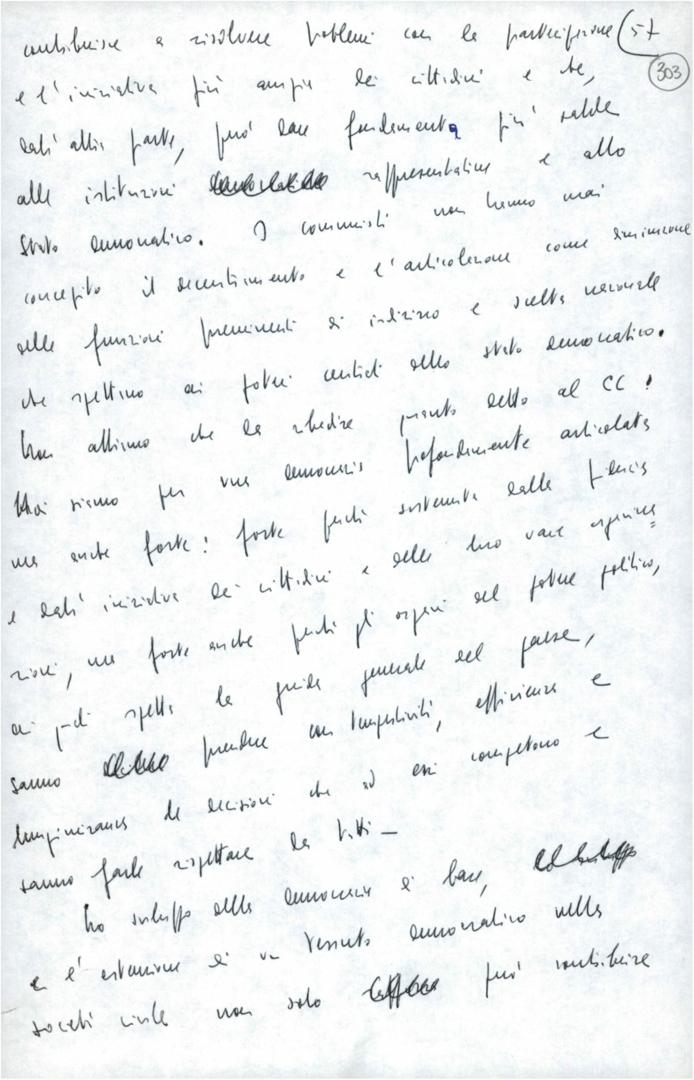 contribuire a risolvere problemi con la partecipazione 57
303
e l'iniziativa più ampia dei cittadini e che,
dall'altra parte, può dare fondamenta più salde
alle istituzioni rappresentative e allo
Stato democratico. I comunisti non hanno mai
concepito il decentramento e l'articolazione come
delle funzioni preminenti di indirizzo e scelta nazionale
che spettano ai poteri centrali dello stato democratico.
Non abbiamo che da ribadire quanto detto al CC:
Noi siamo per una democrazia profondamente articolata
ma anche forte: forte perché sostenuta dalla fiducia
e dall'iniziativa dei cittadini e delle loro varie organizza=
zioni, ma forte anche perché gli organi del potere politico,
ai quali spetta la guida generale del paese,
sanno prendere con tempestività, efficienza e
lungimiranza le decisioni che ad essi competono e
sanno farle rispettare da tutti –
Lo sviluppo della democrazia di base,
e l'estensione di un tessuto democratico nella
società civile non solo può contribuire